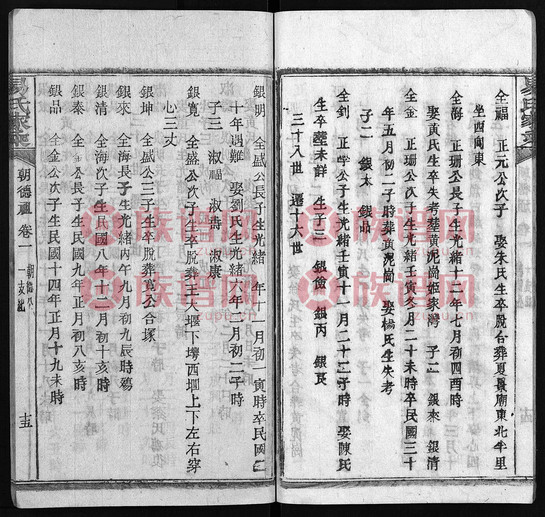 全福 正元公次子 娶朱氏生卒脫合葬夏景廟東北半里
坐西向東
全海 正珊公長子生光緒十四年七月初四酉時
娶黃氏生卒失考葬黃泥崗姬家灣 子二 銀來 銀清
全金 正珊公次子生光緒壬寅冬月二十未時卒民國三十
年五月初二子時葬黃泥崗 娶楊氏生失考
子二 銀太 銀品
全釗 正学公子生光緒壬寅十一月二十二子時 娶陳氏
生卒葬未詳 生子三 銀儉 銀丙 銀良
三十八世 遷十六世
銀明 全盛公長子生光緒 年 月初一寅時卒民國
十年遇難 娶劉氏生光緒六年二月初二子時
子三 淑福 淑壽 淑康
銀寬 全盛公次子生卒脫葬王大堰下塝西堌上下左右穿
心三丈
銀坤 全盛公三子生卒脫葬寬公合塚
銀來 全海長子生光緒丙午九月初九辰時殤
銀清 全海次子生民國八年十二月初十亥時
銀泰 全金公長子生民國九年正月初八亥時
銀品 全金公次子生民國十四年正月十九未時
易氏家乘
朝德祖 卷一
十五
族谱网